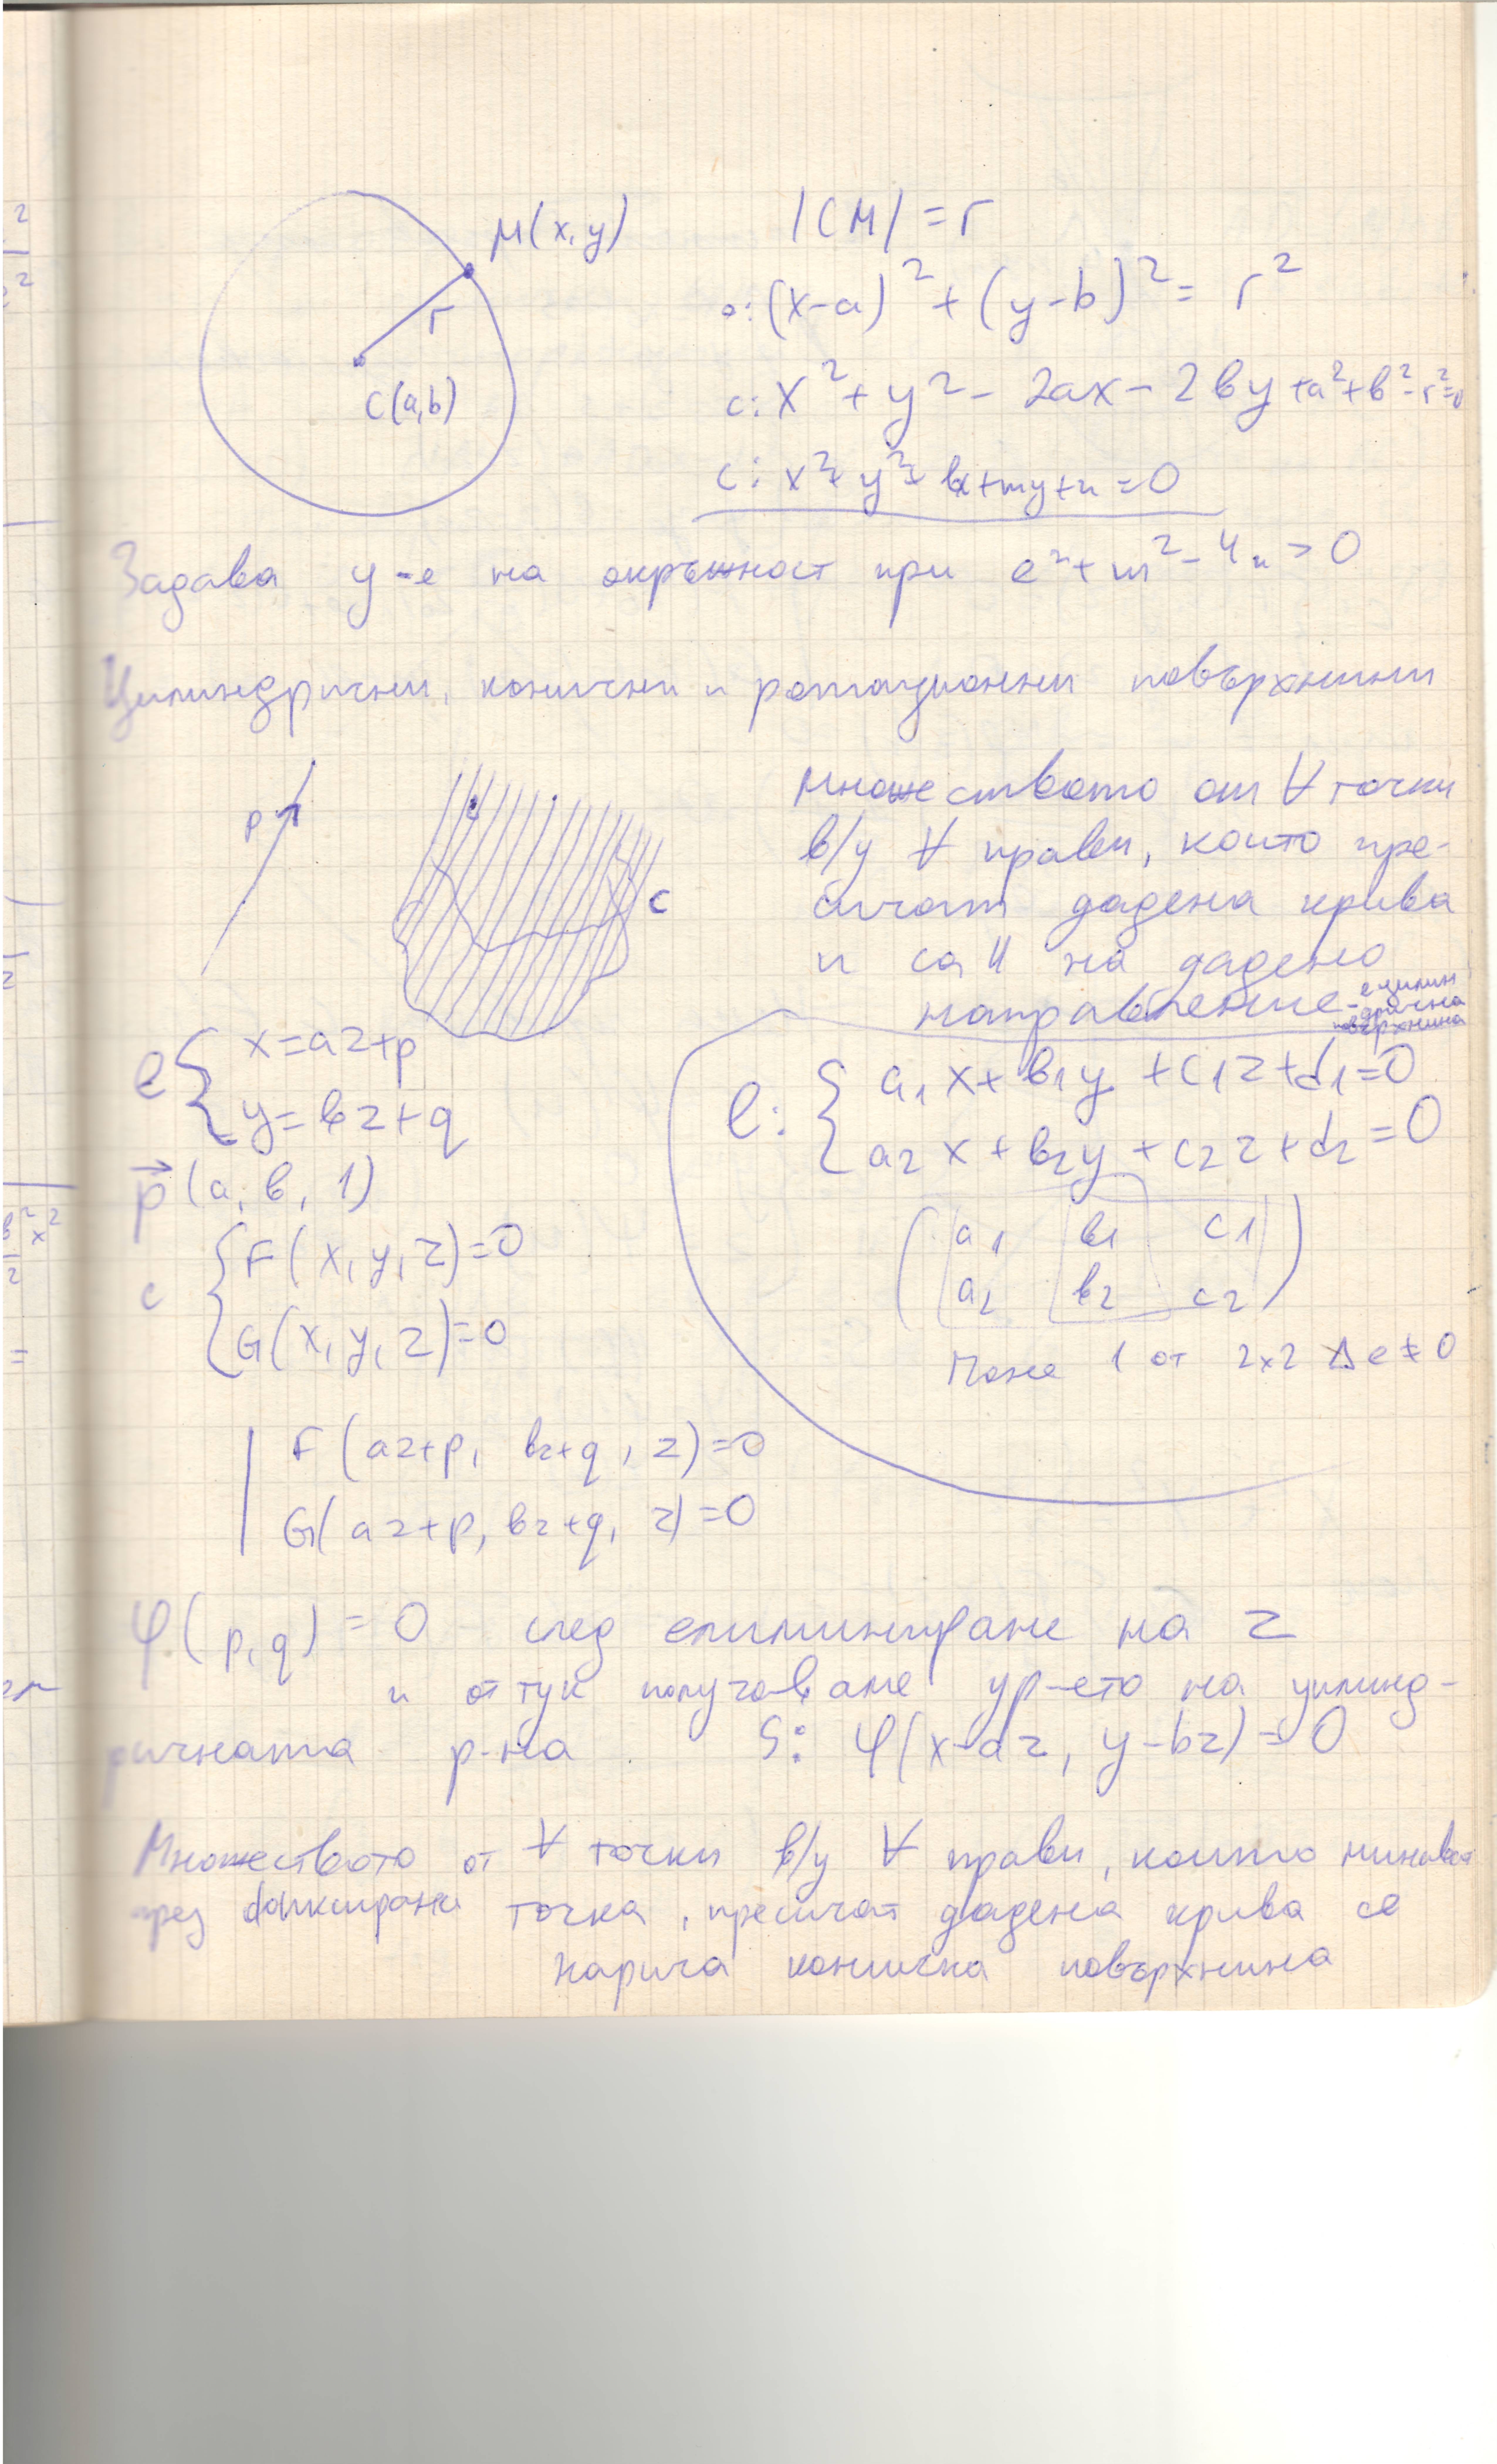 M(x,y)
r
C(a,b)
|CM| = r
c: (x-a)² + (y-b)² = r²
c: x² + y² - 2ax - 2by + a² + b² - r² = 0
c: x² + y² + lx + my + n = 0
Задава у-е на окръжност при l² + m² - 4n > 0
Цилиндрични, конични и ротационни повърхнини
p
c
Множеството от ∀ точки
в/у ∀ прави, които пре-
сичат дадена крива
и са || на дадено
направление - е цилин
дрична
повърхнина
l { x = az + p
y = bz + q
p⃗ (a, b, 1)
c { F(x, y, z) = 0
G(x, y, z) = 0
l: { a₁x + b₁y + c₁z + d₁ = 0
a₂x + b₂y + c₂z + d₂ = 0
( a₁ b₁ c₁
a₂ b₂ c₂ )
Поне 1 от 2x2 Δ е ≠ 0
| F(az+p, bz+q, z) = 0
G(az+p, bz+q, z) = 0
φ(p,q) = 0 след елиминиране на z
и от тук получаваме ур-ето на цилинд-
ричната р-на S: φ(x-az, y-bz) = 0
Множеството от ∀ точки в/у ∀ прави, които минават
през фиксирана точка, пресичат дадена крива се
нарича конична повърхнина